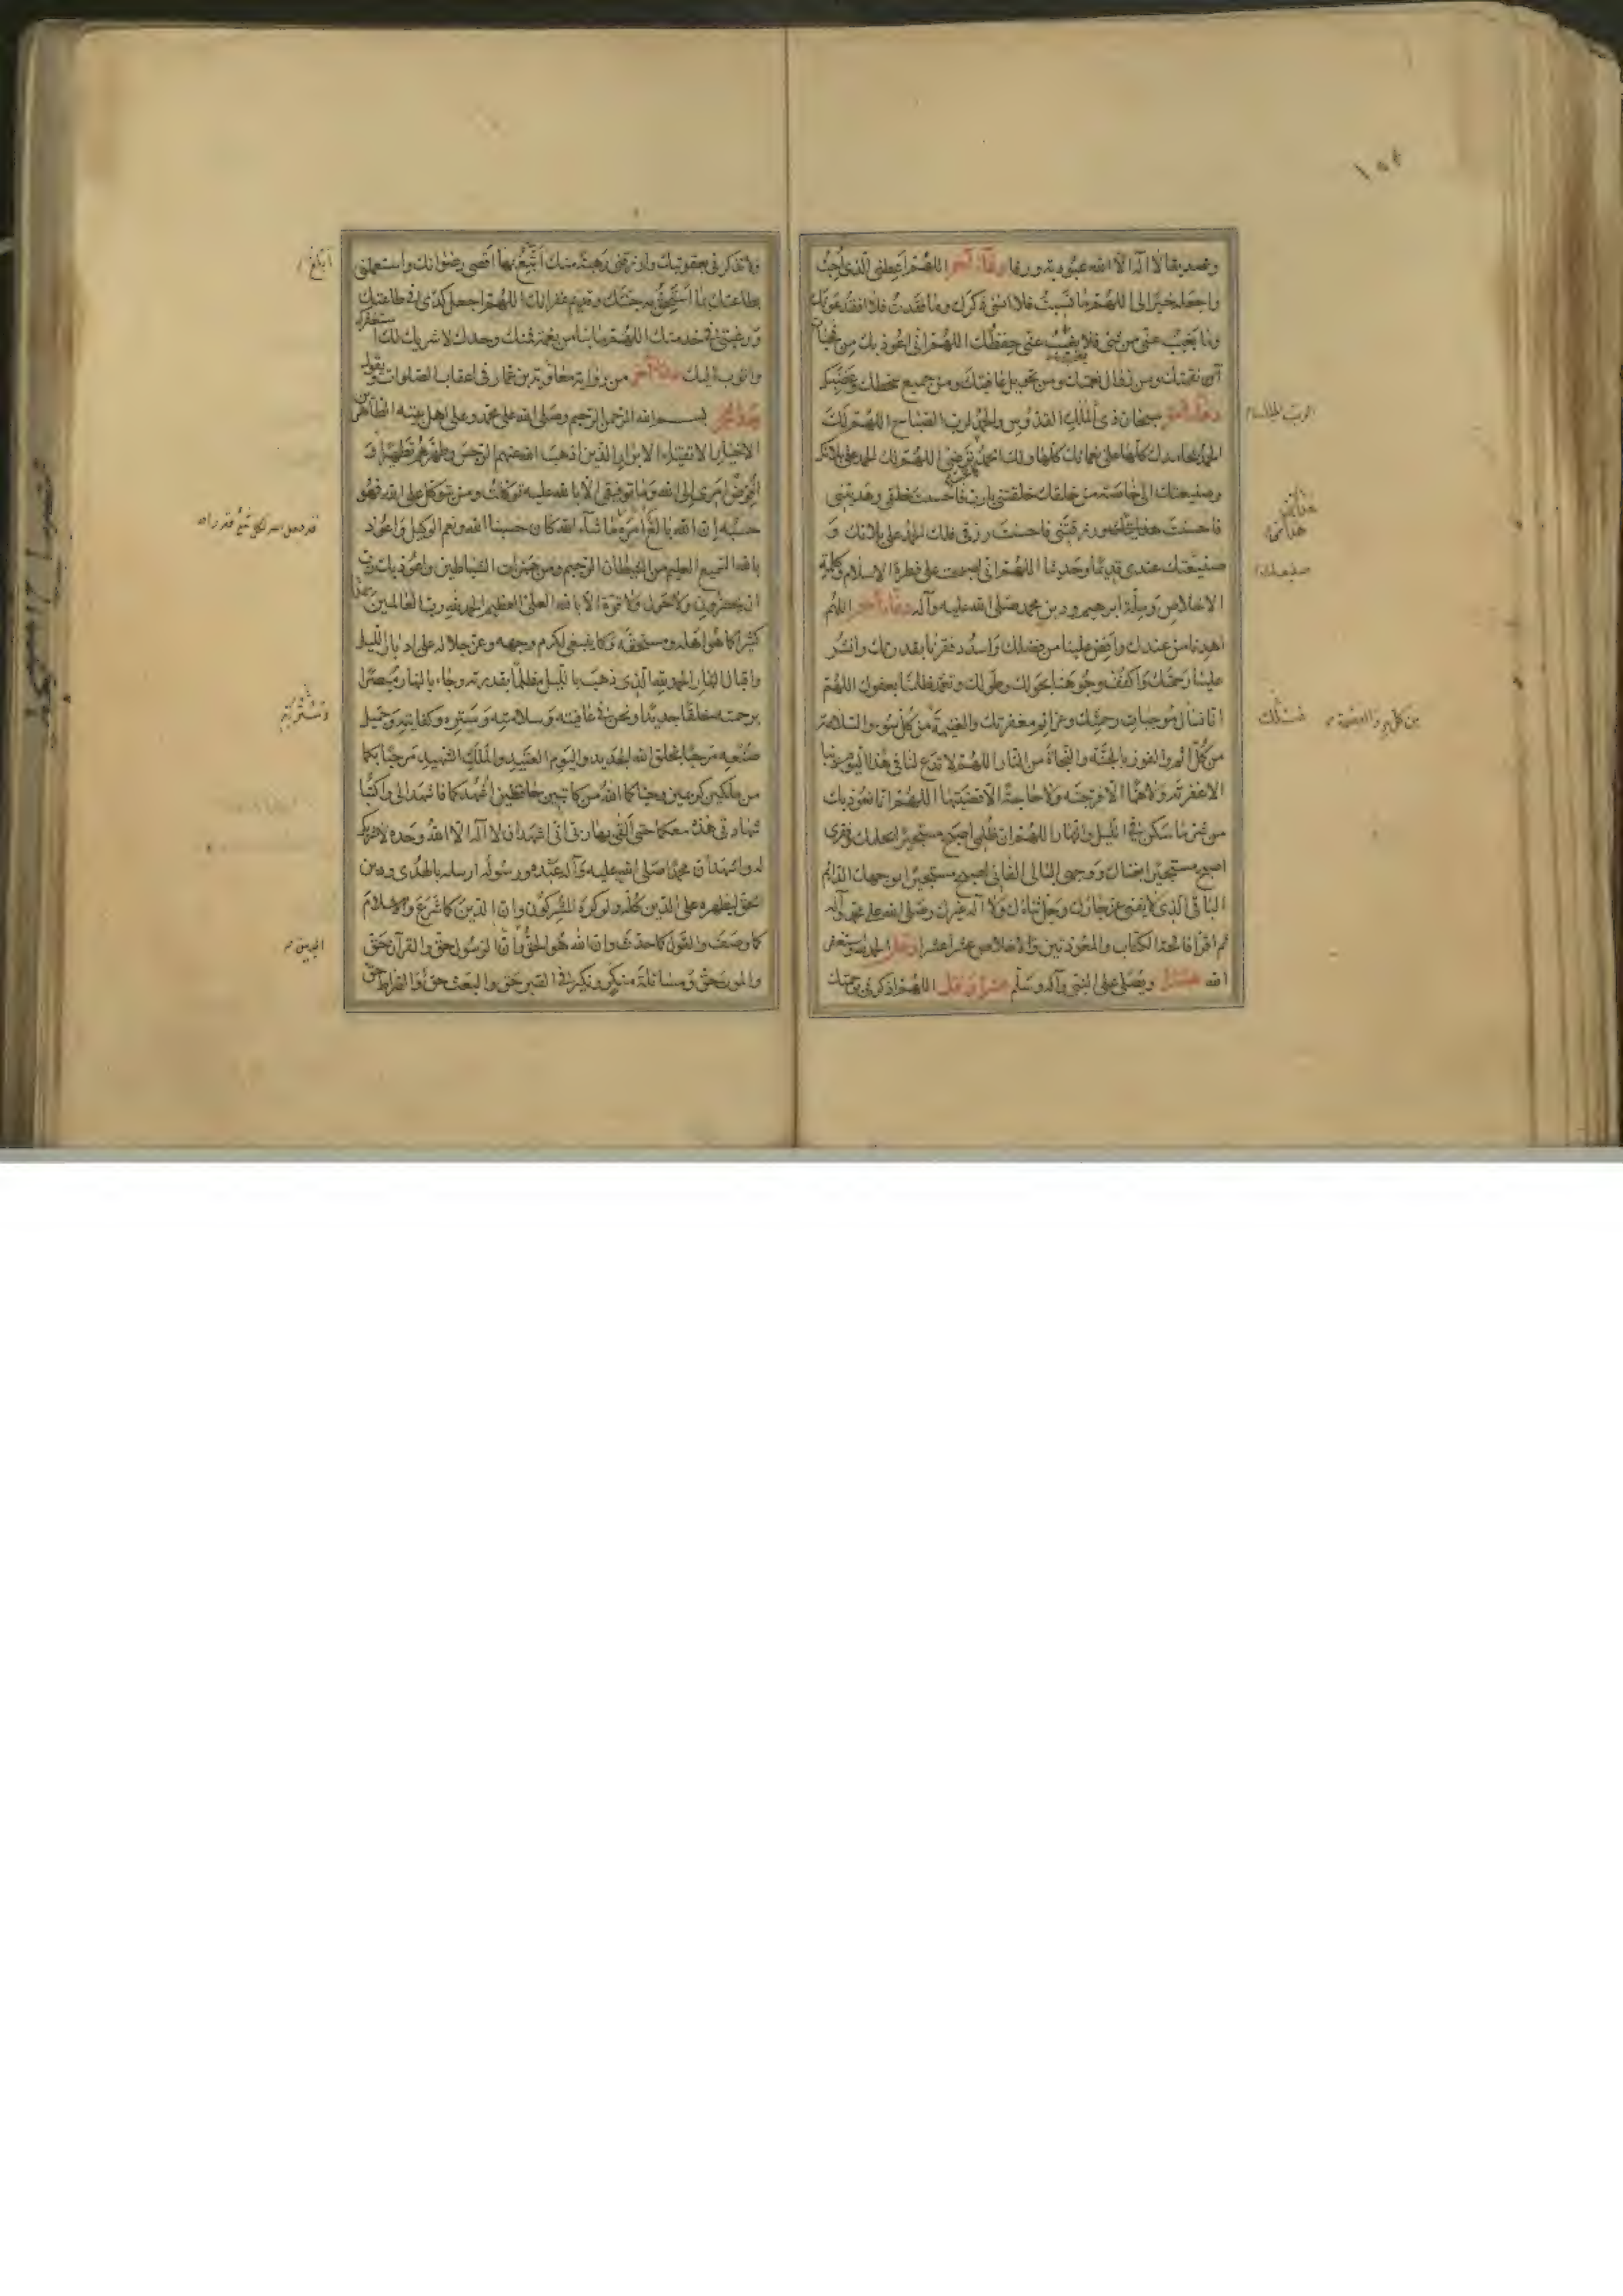 وتصديقا لا اله الا الله عبودية ورقا دعاء آخر اللهم اعطني الذي احب
واجعله خيرا لي اللهم ما نسيت فلا انسى ذكرك وما فقدت فلا افقد عونك
وما يغيب عني من شيء فلا يغيب عني حفظك اللهم اني اعوذ بك من فجأت
نقمتك ومن زوال نعمتك ومن تحويل عافيتك ومن جميع سخطك وغضبك
دعاء آخر سبحان ذي الملك القدوس والحمد لرب الصباح اللهم لك
الحمد بمحامدك كلها على نعمائك كلها ولك الحمد كما ترضى اللهم لك الحمد على بلائك
وصنيعتك الى خاصة من خلقك خلقتني يا رب فاحسنت خلقي وهديتني
فاحسنت هدايتك ورزقتني فاحسنت رزقي فلك الحمد على بلائك و
صنيعتك عندي قديما وحديثا اللهم اني اصبحت على فطرة الاسلام وكلمة
الاخلاص وملة ابرهيم ودين محمد صلى الله عليه وآله دعاء آخر اللهم
اهدنا من عندك وافض علينا من فضلك واسدد فقرنا بقدرتك وانشر
علينا رحمتك واكفف وجوهنا بحولك وطولك وتغمد ظلمنا بعفوك اللهم
انا نسألك موجبات رحمتك وعزائم مغفرتك والغنيمة من كل بر والسلامة
من كل اثم والفوز بالجنة والنجاة من النار اللهم لا تدع لنا في هذا اليوم ذنبا
الا غفرته ولا هما الا فرجته ولا حاجة الا قضيتها اللهم انا نعوذ بك
من شر ما سكن في الليل والنهار اللهم ان ظلمي اصبح مستجيرا بحلمك وفقري
اصبح مستجيرا بغناك ووجهي البالي الفاني اصبح مستجيرا بوجهك الدائم
الباقي الذي لا يفنى عز جارك وجل ثناؤك ولا اله غيرك وصلى الله على محمد وآله
ثم اقرأ فاتحة الكتاب والمعوذتين والاخلاص عشرا عشرا وقل الحمد لله واستغفر
الله عشرا ويصلي على النبي وآله وسلم عشرا وقل اللهم اذكرني برحمتك
صنيعك
ولا تذكرني بعقوبتك وارزقني رهبة منك ابلغ بها اقصى رضوانك واستعملني
بطاعتك بما استحق به جنتك وقديم غفرانك اللهم اجعل كدي في طاعتك
ورغبتي في خدمتك اللهم ما بنا من نعمة فمنك وحدك لا شريك لك استغفرك
واتوب اليك دعاء آخر من رواية معاوية بن عمار في اعقاب الصلوات ويقول
بعد الفجر بسم الله الرحمن الرحيم وصلى الله على محمد وعلى اهل بيته الطاهرين
الاخيار الاتقياء الابرار الذين اذهب الله عنهم الرجس وطهرهم تطهيرا و
افوض امري الى الله وما توفيقي الا بالله عليه توكلت ومن يتوكل على الله فهو
حسبه ان الله بالغ امره ما شاء الله كان حسبنا الله ونعم الوكيل واعوذ
بالله السميع العليم من الشيطان الرجيم ومن همزات الشياطين واعوذ بك رب
ان يحضرون ولا حول ولا قوة الا بالله العلي العظيم الحمد لله رب العالمين حمدا
كثيرا كما هو اهله ومستحقه وكما ينبغي لكرم وجهه وعز جلاله على ادبار الليل
واقبال النهار الحمد لله الذي ذهب بالليل مظلما بقدرته وجاء بالنهار مبصرا
برحمته خلقا جديدا ونحن في عافيته وسلامته وستره وكفايته وجميل
صنعه مرحبا بخلق الله الجديد واليوم العتيد والملك الشهيد مرحبا بكما
من ملكين كريمين وحياكما الله من كاتبين حافظين اشهدكما فاشهدا لي واكتبا
شهادتي هذه معكما حتى القى بها ربي اني اشهد ان لا اله الا الله وحده لا شريك
له واشهد ان محمدا صلى الله عليه وآله عبده ورسوله ارسله بالهدى ودين
الحق ليظهره على الدين كله ولو كره المشركون وان الدين كما شرع والاسلام
كما وصف والقول كما حدث وان الله هو الحق وان الرسول حق والقرآن حق
والموت حق ومسائلة منكر ونكير في القبر حق والبعث حق والصراط حق
ابلغ